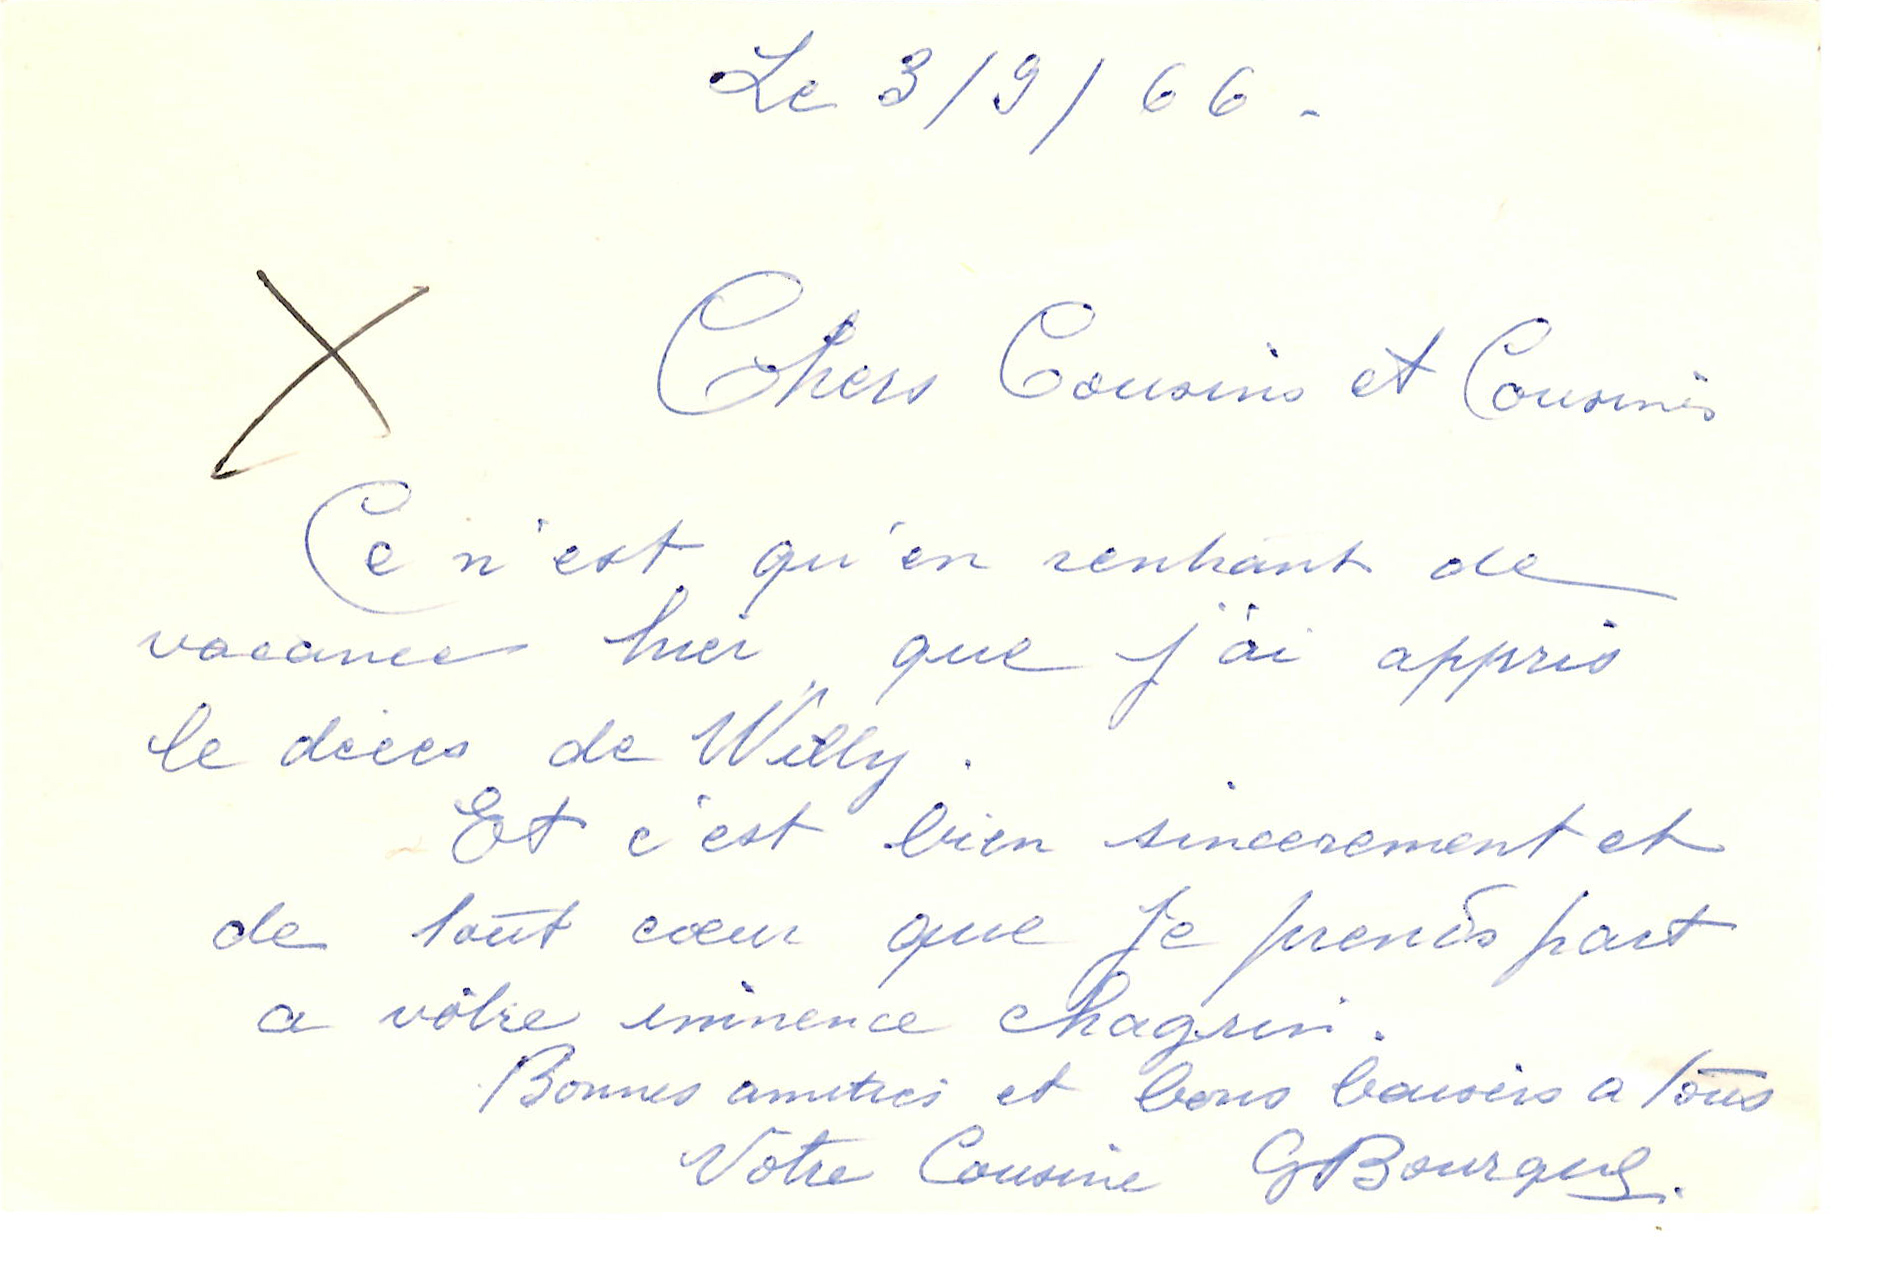 Le 3/9/66.
Chers Cousins et Cousines
Ce n'est qu'en rentrant de
vacances hier que j'ai appris
le décès de Willy.
Et c'est bien sincerement et
de tout cœur que je prends part
a vôtre eminence chagrin.
Bonnes amitiés et bons baisers a tous
Votre Cousine G Bourque.